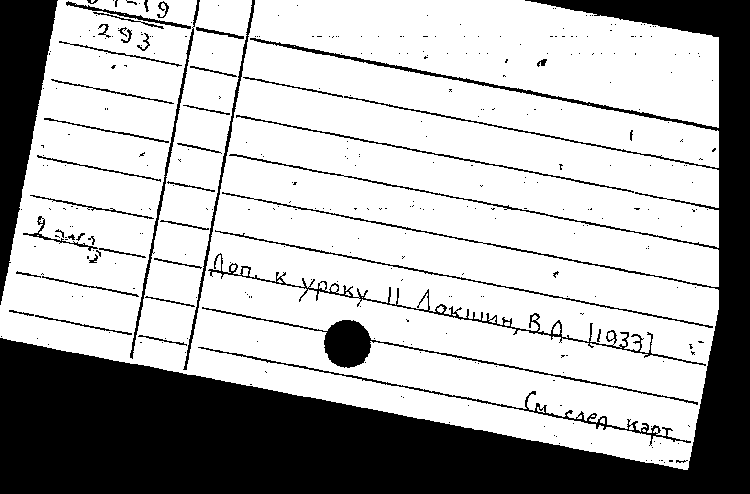 293
2 экз
Доп. к уроку 11 Локшин, В.Д. [1933]
См. след карт.